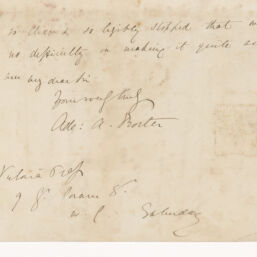 so clear & so legibly stopped that
no difficulty in making it quite
my dear Sir
Yours very truly
Ade: A. Procter
Victoria Press
9 Gt. Coram St.
W. C. Saturday